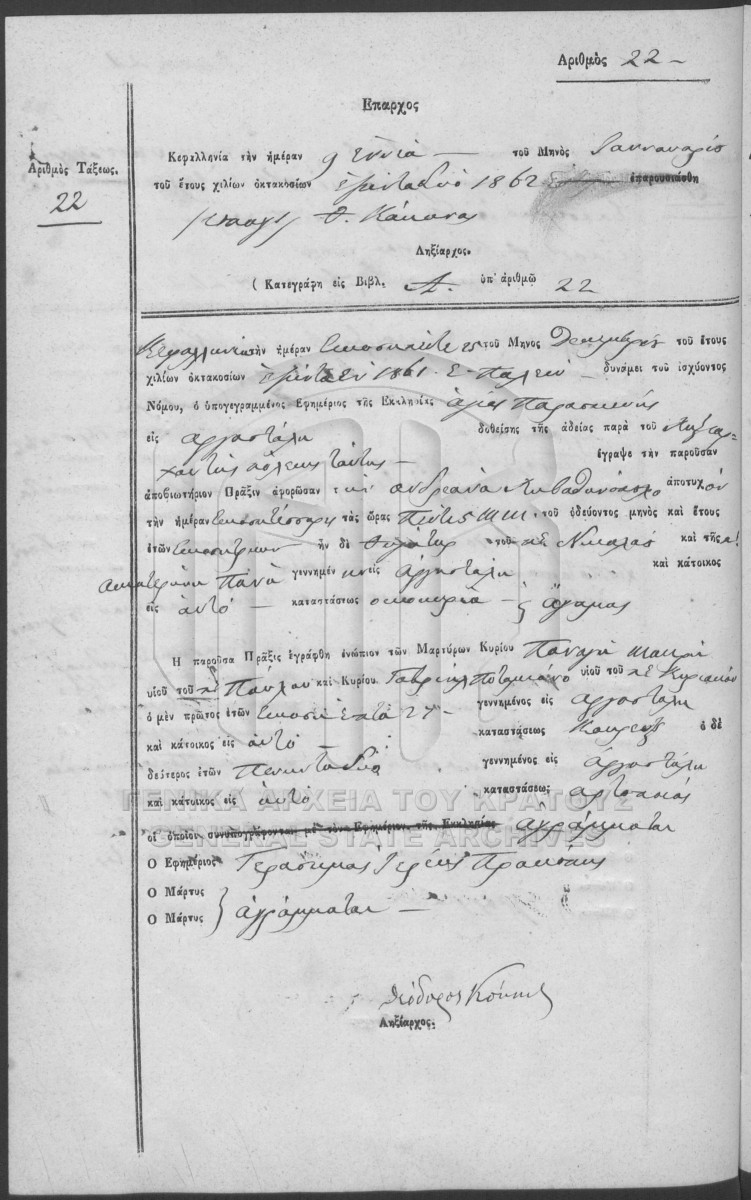 Αριθμὸς 22
Επαρχος
Αριθμὸς Τάξεως.
22
Κεφαλληνία τὴν ἡμέραν 9 Εννέα τοῦ Μηνὸς Ιαννουαρίου
τοῦ ἔτους χιλίων ὀκτακοσίων ἑξῆντα δυὸ 1862 ἐπαρουσιάσθη
Θ.
Ληξίαρχος.
( Κατεγράφη εἰς Βιβλ. Α. ὑπ' ἀριθμῷ 22
Κεφαλληνία τὴν ἡμέραν Εικοσιπέντε 25 τοῦ Μηνος Δεκεμβρίου τοῦ ἔτους
χιλίων ὀκτακοσίων ἑξῆντα ἓν 1861. Ε. Παλαιὸν δυνάμει τοῦ ἰσχύοντος
Νόμου, ὁ ὑπογεγραμμένος Ἐφημέριος τῆς Εκκλησίες ἁγίας Παρασκευῆς
εἰς αργοστόλι δοθείσης τῆς ἀδείας παρὰ τοῦ Ληξιάρ-
χου της πόλεως ταύτης ἔγραψε τὴν παροῦσαν
ἀποβιωτήριον Πρᾶξιν ἀφορῶσαν την ανδρεάνα ἀποτυχὸν
τὴν ἡμέραν Εικοσιτέσσαρες τὰς ὥρας Πέντε 5 Μ.Μ. τοῦ ὁδεύοντος μηνὸς καὶ ἔτους
ἐτῶν Εικοσιτριων ἦν δὲ θυγατηρ τοῦ Νικολάου καὶ τῆς
Αικατερίνη Πανᾶ γεννημέν εἰς ἀργοστόλι καὶ κάτοικος
εἰς αυτὸ καταστάσεως οικοκυρία ἄγαμος
Η παροῦσα Πρᾶξις ἐγράφθη ἐνώπιον τῶν Μαρτύρων Κυρίου Παναγὴ Μακρὴ
υἱοῦ τοῦ Παύλου καὶ Κυρίου Γαβρίλη Ποταμιάνο υἱοῦ τοῦ Κυριακοῦ
ὁ μὲν πρῶτος ἐτῶν Εικοσι επτὰ 27 γεννημένος εἰς ἀργοστόλι
καὶ κάτοικος εἰς αυτὸ καταστάσεως ὁ δὲ
δεύτερος ἐτῶν Πενηντα δυὸ γεννημένος εἰς ἀργοστόλι
καὶ κάτοικος εἰς αυτὸ καταστάσεως ἀρτοποιὸς
οἱ ὁποῖοι συνυπογράφονται μὲ τὸν Εφημέριον τῆς Εκκλησίας ἀγράμματοι
Ο Εφημέριος Γεράσιμος Ιερεὺς
Ο Μάρτυς
Ο Μάρτυς ἀγράμματοι
Θεόδωρος
Ληξίαρχος.
ΓΕΝΙΚΑ ΑΡΧΕΙΑ ΤΟΥ ΚΡΑΤΟΥΣ
GENERAL STATE ARCHIVES